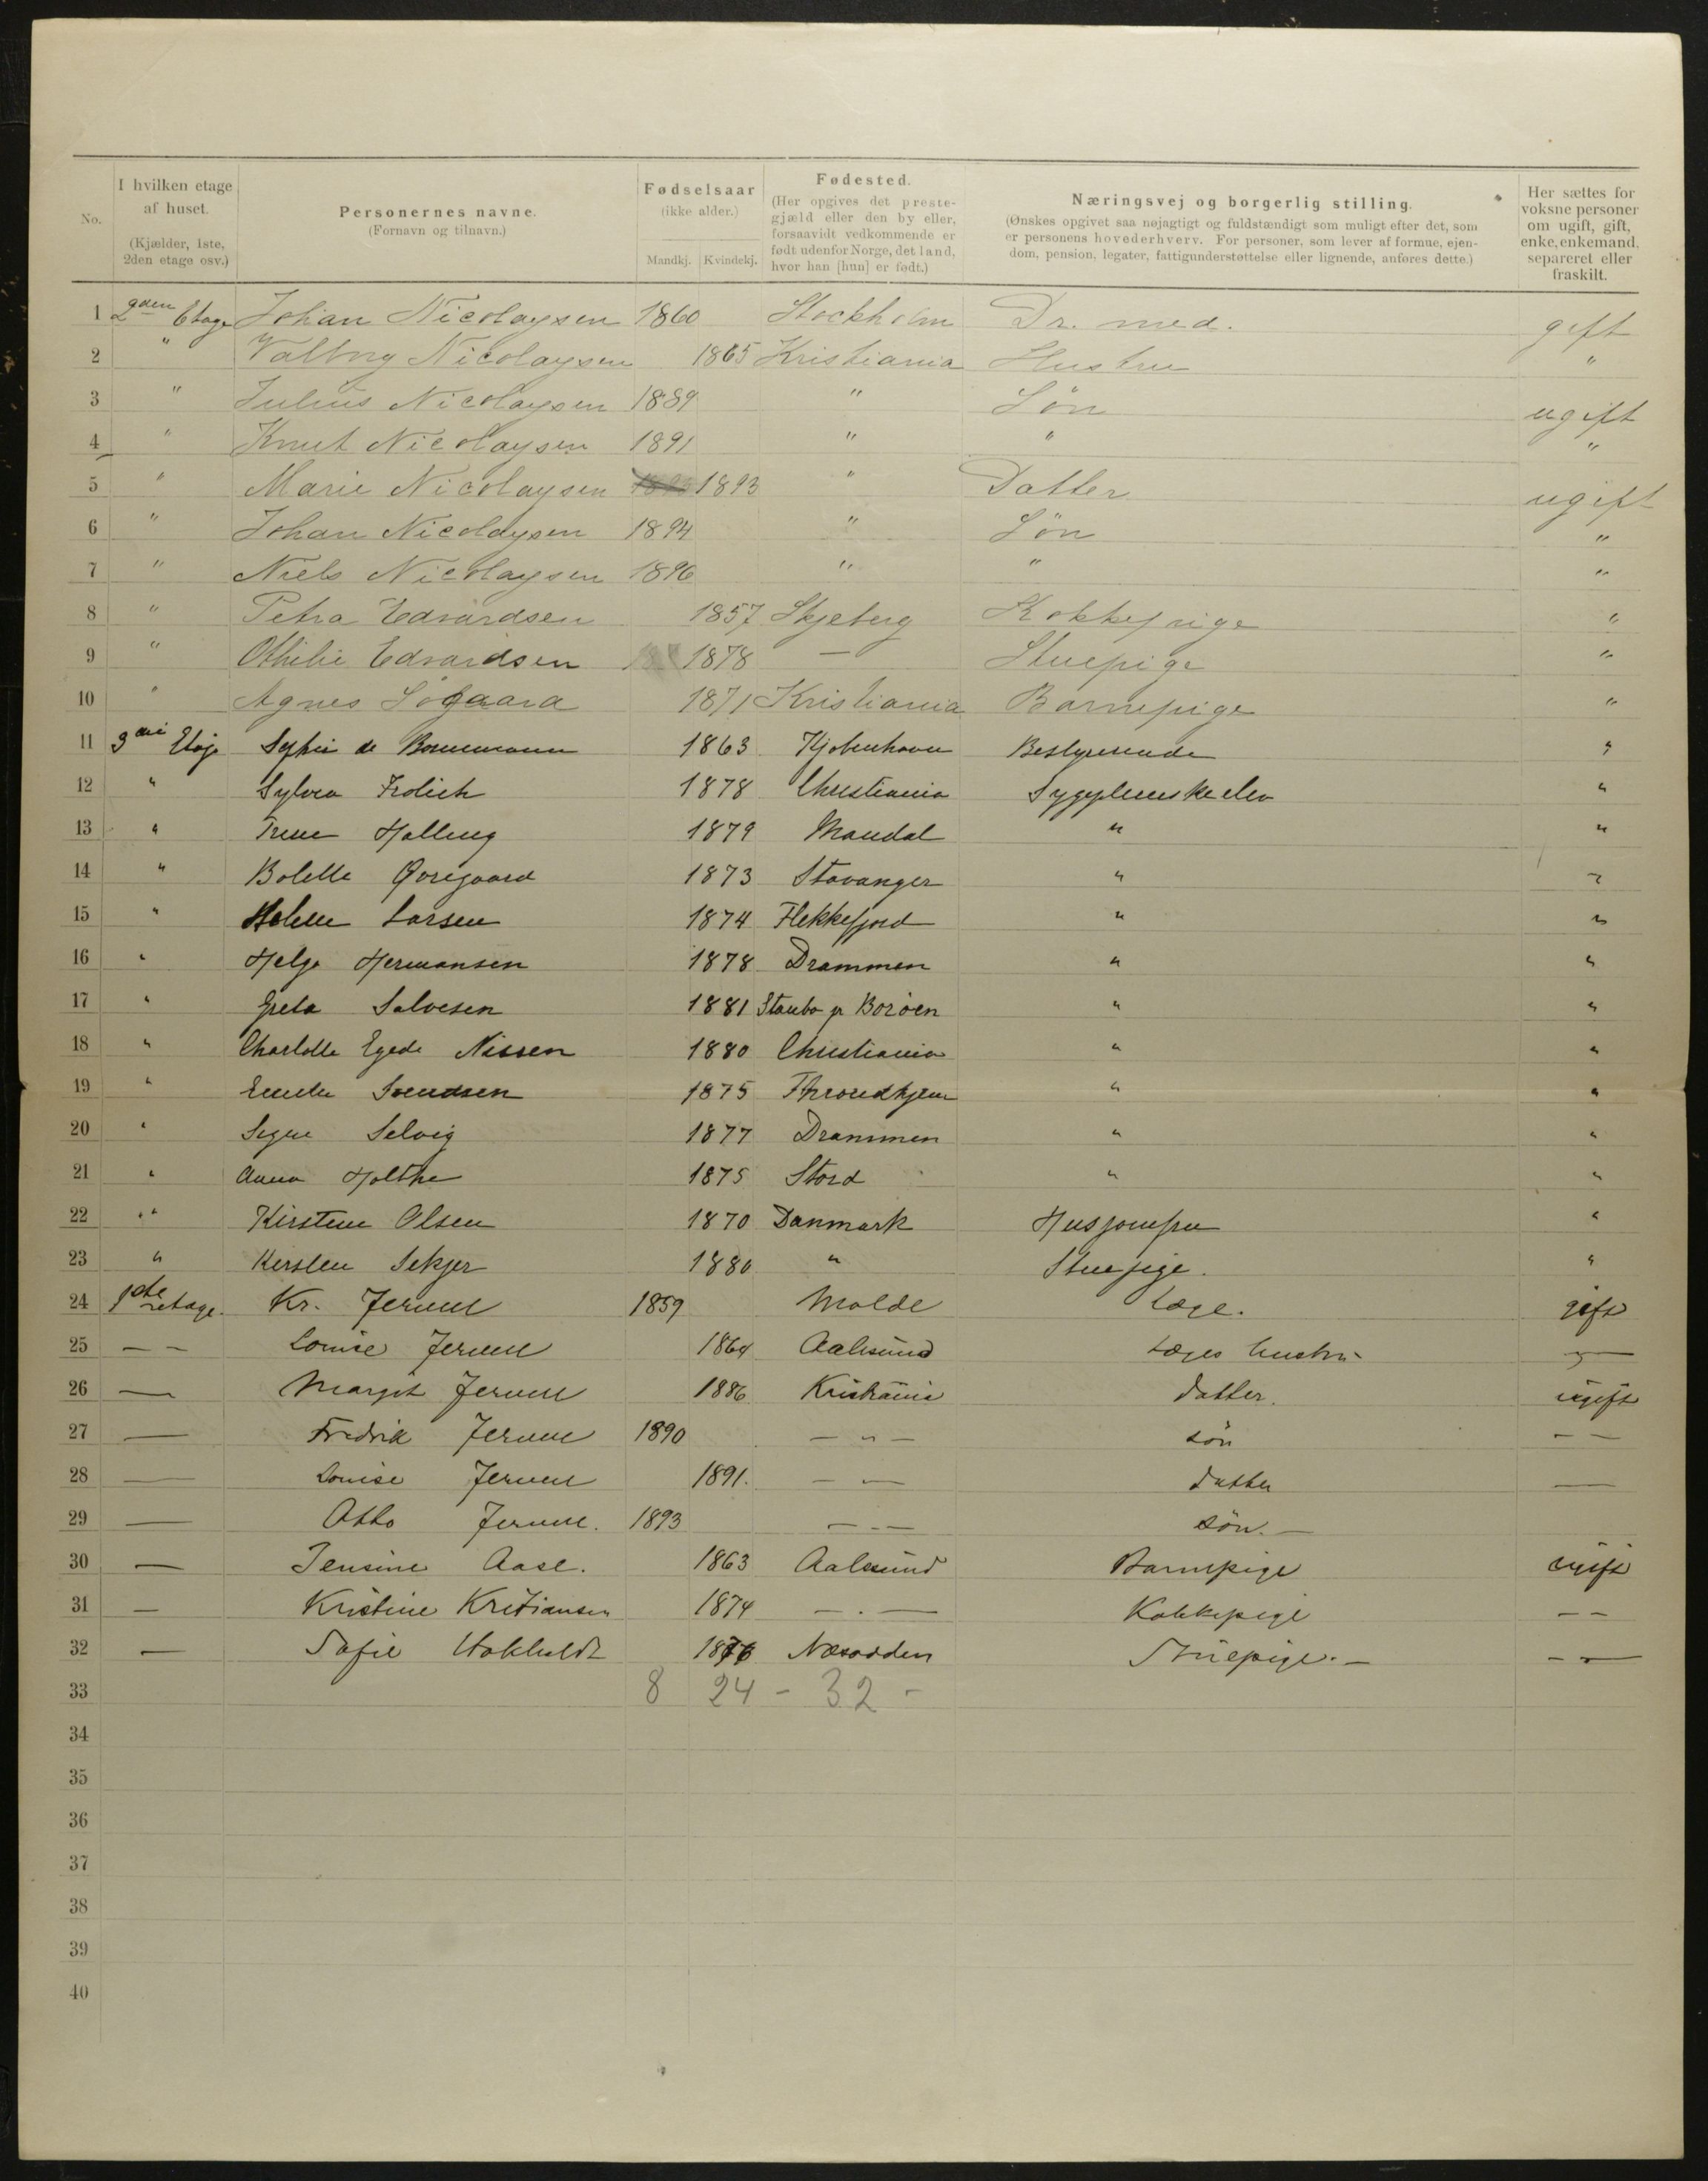 No.
I hvilken etage af huset. (Kjælder, 1ste, 2den etage osv.)
Personernes navne. (Fornavn og tilnavn.)
Fødselsaar (ikke alder.) Mandkj. Kvindekj.
Fødested. (Her opgives det prestegjæld eller den by eller, forsaavidt vedkommende er født udenfor Norge, det land, hvor han [hun] er født.)
Næringsvej og borgerlig stilling. (Ønskes opgivet saa nøjagtigt og fuldstændigt som muligt efter det, som er personens hovederhverv. For personer, som lever af formue, ejendom, pension, legater, fattigunderstøttelse eller lignende, anføres dette.)
Her sættes for voksne personer om ugift, gift, enke, enkemand, separeret eller fraskilt.
1 2den Etage Johan Nicolaysen 1860 Stockholm Dr. med. gift
2 " Valborg Nicolaysen 1865 Kristiania Hustru "
3 " Julius Nicolaysen 1889 " Søn ugift
4 " Knut Nicolaysen 1891 " " "
5 " Marie Nicolaysen 1893 " Datter ugift
6 " Johan Nicolaysen 1894 " Søn "
7 " Niels Nicolaysen 1896 " " "
8 " Petra Edvardsen 1857 Skjeberg Kokkepige "
9 " Othilie Edvardsen 1878 — Stuepige "
10 " Agnes Søgaard 1871 Kristiania Barnepige "
11 3die Etage Sophie de 1863 Kjøbenhavn Bestyrerinde "
12 " Sylvia Frølich 1878 Christiania Sygepleierske elev "
13 " 1879 Mandal " "
14 " Bolette 1873 Stavanger " "
15 " Larsen 1874 Flekkefjord " "
16 " Helga Hermansen 1878 Drammen " "
17 " Greta Salvesen 1881 Staubo pr Borøen " "
18 " Charlotte Egede Nissen 1880 Christiania " "
19 " Svendsen 1875 Throndhjem " "
20 " Signe Selvig 1877 Drammen " "
21 " Anna Holthe 1875 Stord " "
22 " Kirstine Olsen 1870 Danmark Husjomfru "
23 " Kirsten Sekjer 1880 " Stuepige. "
24 1ste etage. Kr. Jervell 1859 Molde Læge. gift
25 — — Louise Jervell 1864 Aalesund Læges hustru —
26 — Margit Jervell 1886 Kristiania datter. ugift
27 — Fredrik Jervell 1890 — " — søn — —
28 — Louise Jervell 1891. — — datter —
29 — Otto Jervell. 1893 — - — søn. —
30 — Jensine Aase. 1863 Aalesund Barnepige ugift
31 — Kristine Kristiansen 1874 — . — Kokkepige — —
32 — Sofie 1876 Næsodden Stuepige. — — —
33 8 24 - 32 -
34
35
36
37
38
39
40